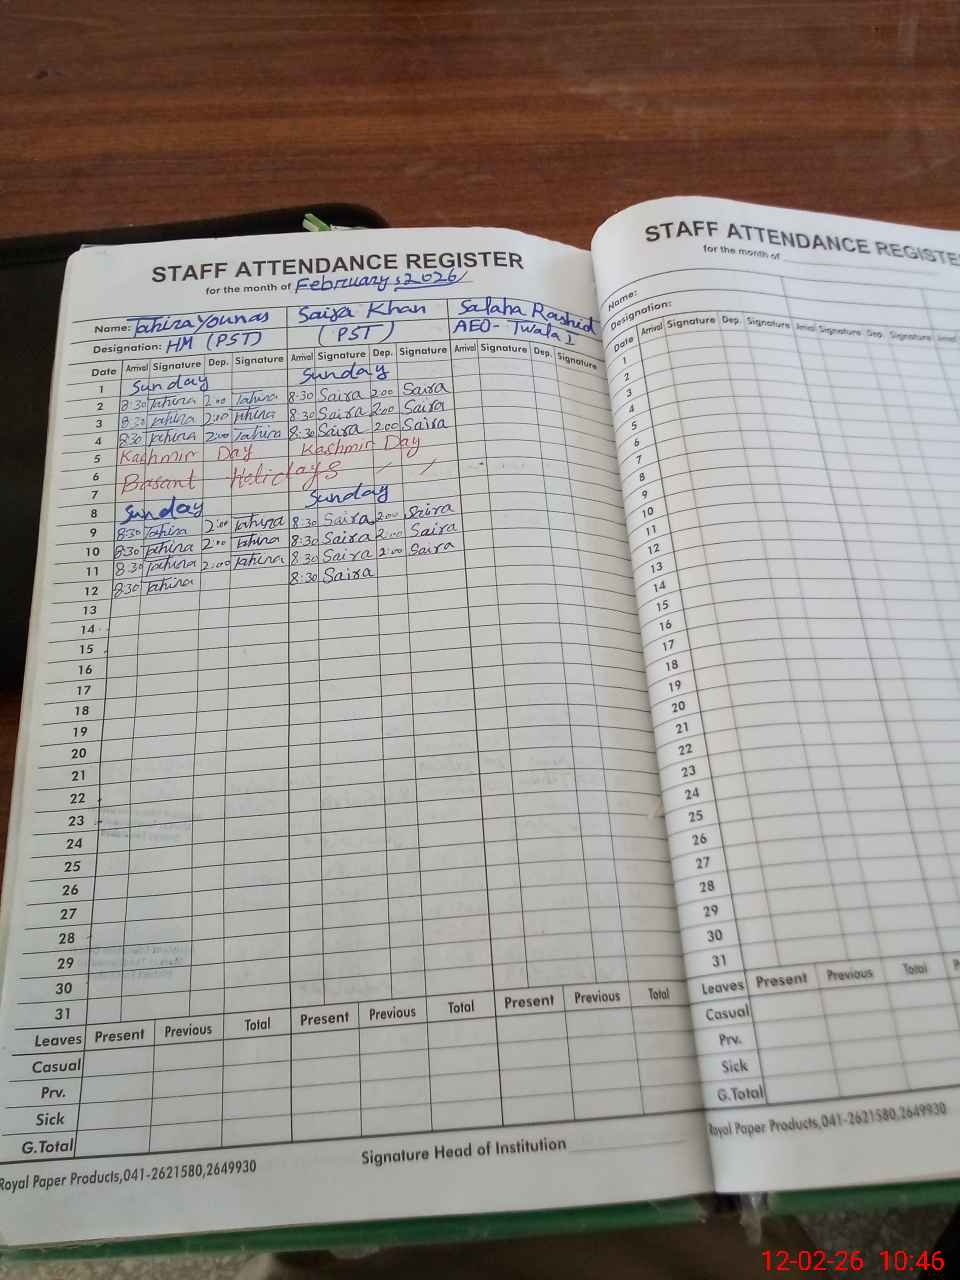 STAFF ATTENDANCE REGISTER
for the month of February, 2026
Name: Tahira Younas Saira Khan Salaha Rashid
Designation: HM (PST) (PST) AEO- Twala I
Date Arrival Signature Dep. Signature Arrival Signature Dep. Signature Arrival Signature Dep. Signature
1 Sunday Sunday
2 8:30 Tahira 2:00 Tahira 8:30 Saira 2:00 Saira
3 8:30 Tahira 2:00 Tahira 8:30 Saira 2:00 Saira
4 8:30 Tahira 2:00 Tahira 8:30 Saira 2:00 Saira
5 Kashmir Day Kashmir Day
6 Basant Holidays
7
8 Sunday Sunday
9 8:30 Tahira 2:00 Tahira 8:30 Saira 2:00 Saira
10 8:30 Tahira 2:00 Tahira 8:30 Saira 2:00 Saira
11 8:30 Tahira 2:00 Tahira 8:30 Saira 2:00 Saira
12 8:30 Tahira 8:30 Saira
13
14
15
16
17
18
19
20
21
22
23
24
25
26
27
28
29
30
31
Leaves Present Previous Total Present Previous Total Present Previous Total
Casual
Prv.
Sick
G.Total
Signature Head of Institution
Royal Paper Products,041-2621580,2649930
STAFF ATTENDANCE REGISTE
for the month of
Name:
Designation:
Date Arrival Signature Dep. Signature Arrival Signature Dep. Signature Arrival
1
2
3
4
5
6
7
8
9
10
11
12
13
14
15
16
17
18
19
20
21
22
23
24
25
26
27
28
29
30
31
Leaves Present Previous Total P
Casual
Prv.
Sick
G.Total
Royal Paper Products,041-2621580,2649930
12-02-26 10:46